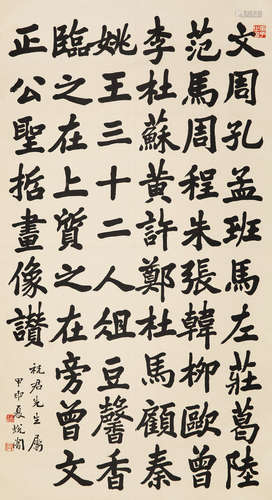 文周孔孟班馬左莊葛陸
范馬周程朱張韓柳歐曾
李杜蘇黃許鄭杜馬顧秦
姚王三十二人俎豆馨香
臨之在上質之在旁曾文
正公聖哲畫像讚
祝君先生屬
甲申夏蛻闇